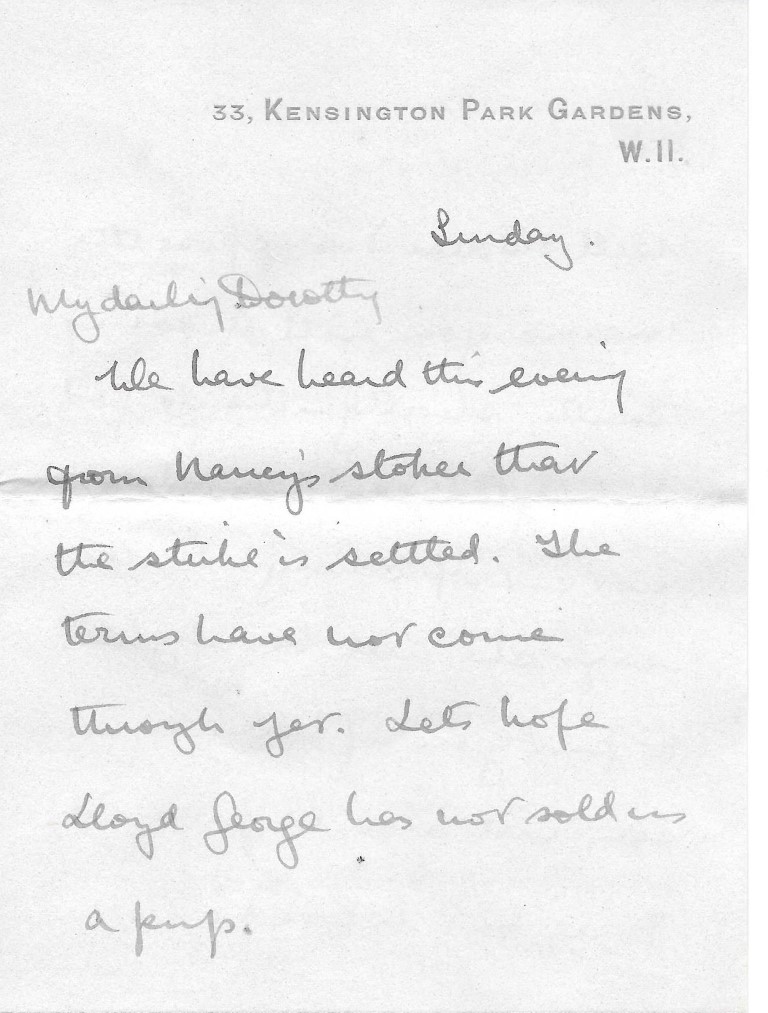 33, KENSINGTON PARK GARDENS,
W.11.
Sunday.
My darling Dorothy
We have heard this evening
from Nancy's stoker that
the strike is settled. The
terms have not come
through yet. Lets hope
Lloyd George has not sold us
a pup.